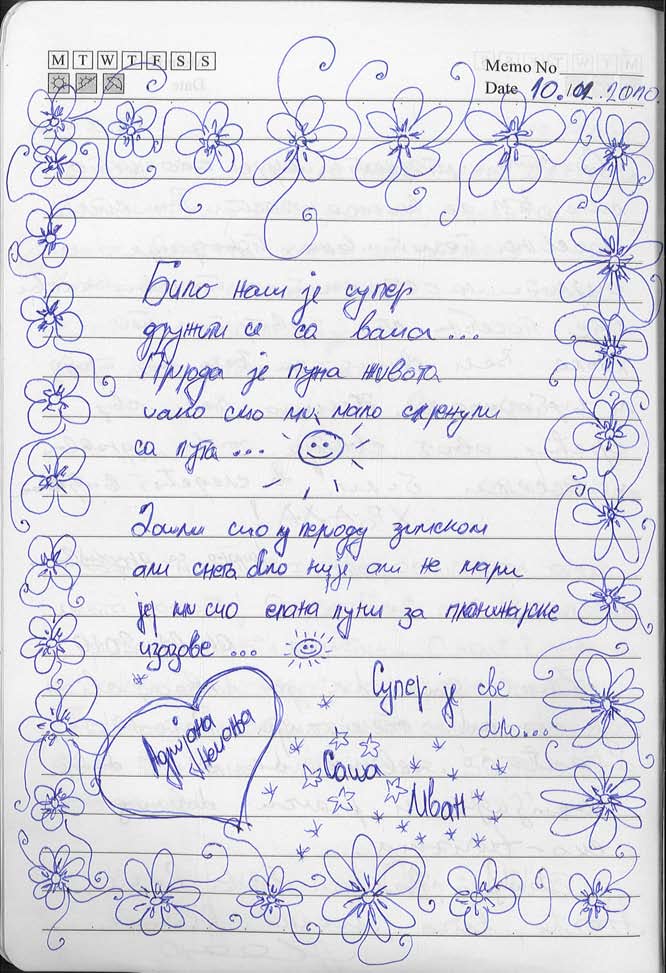 M T W T F S S
Memo No
Date 10. 01. 2010.
Било нам је супер
дружити се са вама...
Природа је пуна живота
иако смо ми мало скренули
са пута ...
Дошли смо у периоду зимском
али снега било није, али не мари
јер ми смо елана пуни за планинарске
изазове ...
Супер је све
било...
Адријана
Немања
Саша
Иван